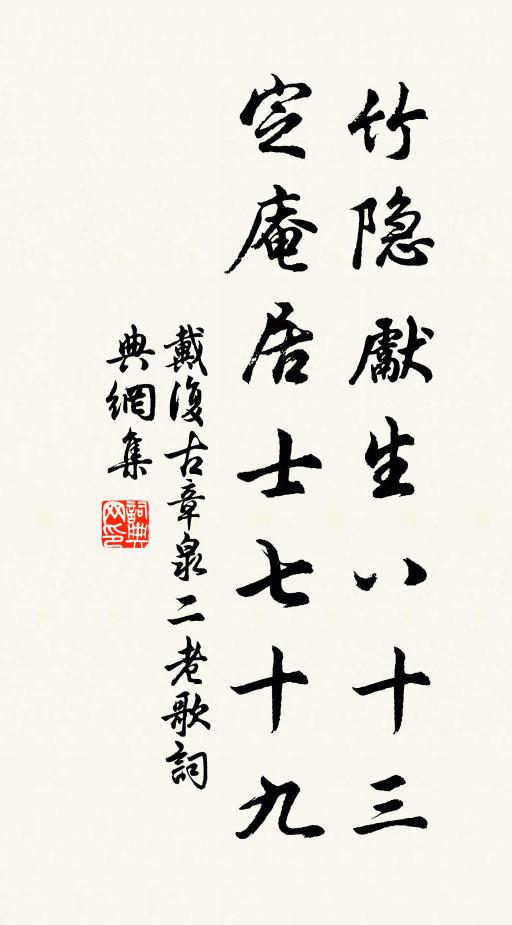 竹隐獻生八十三
定庵居士七十九
戴復古章泉二老歌詞
典網集
詞典网印